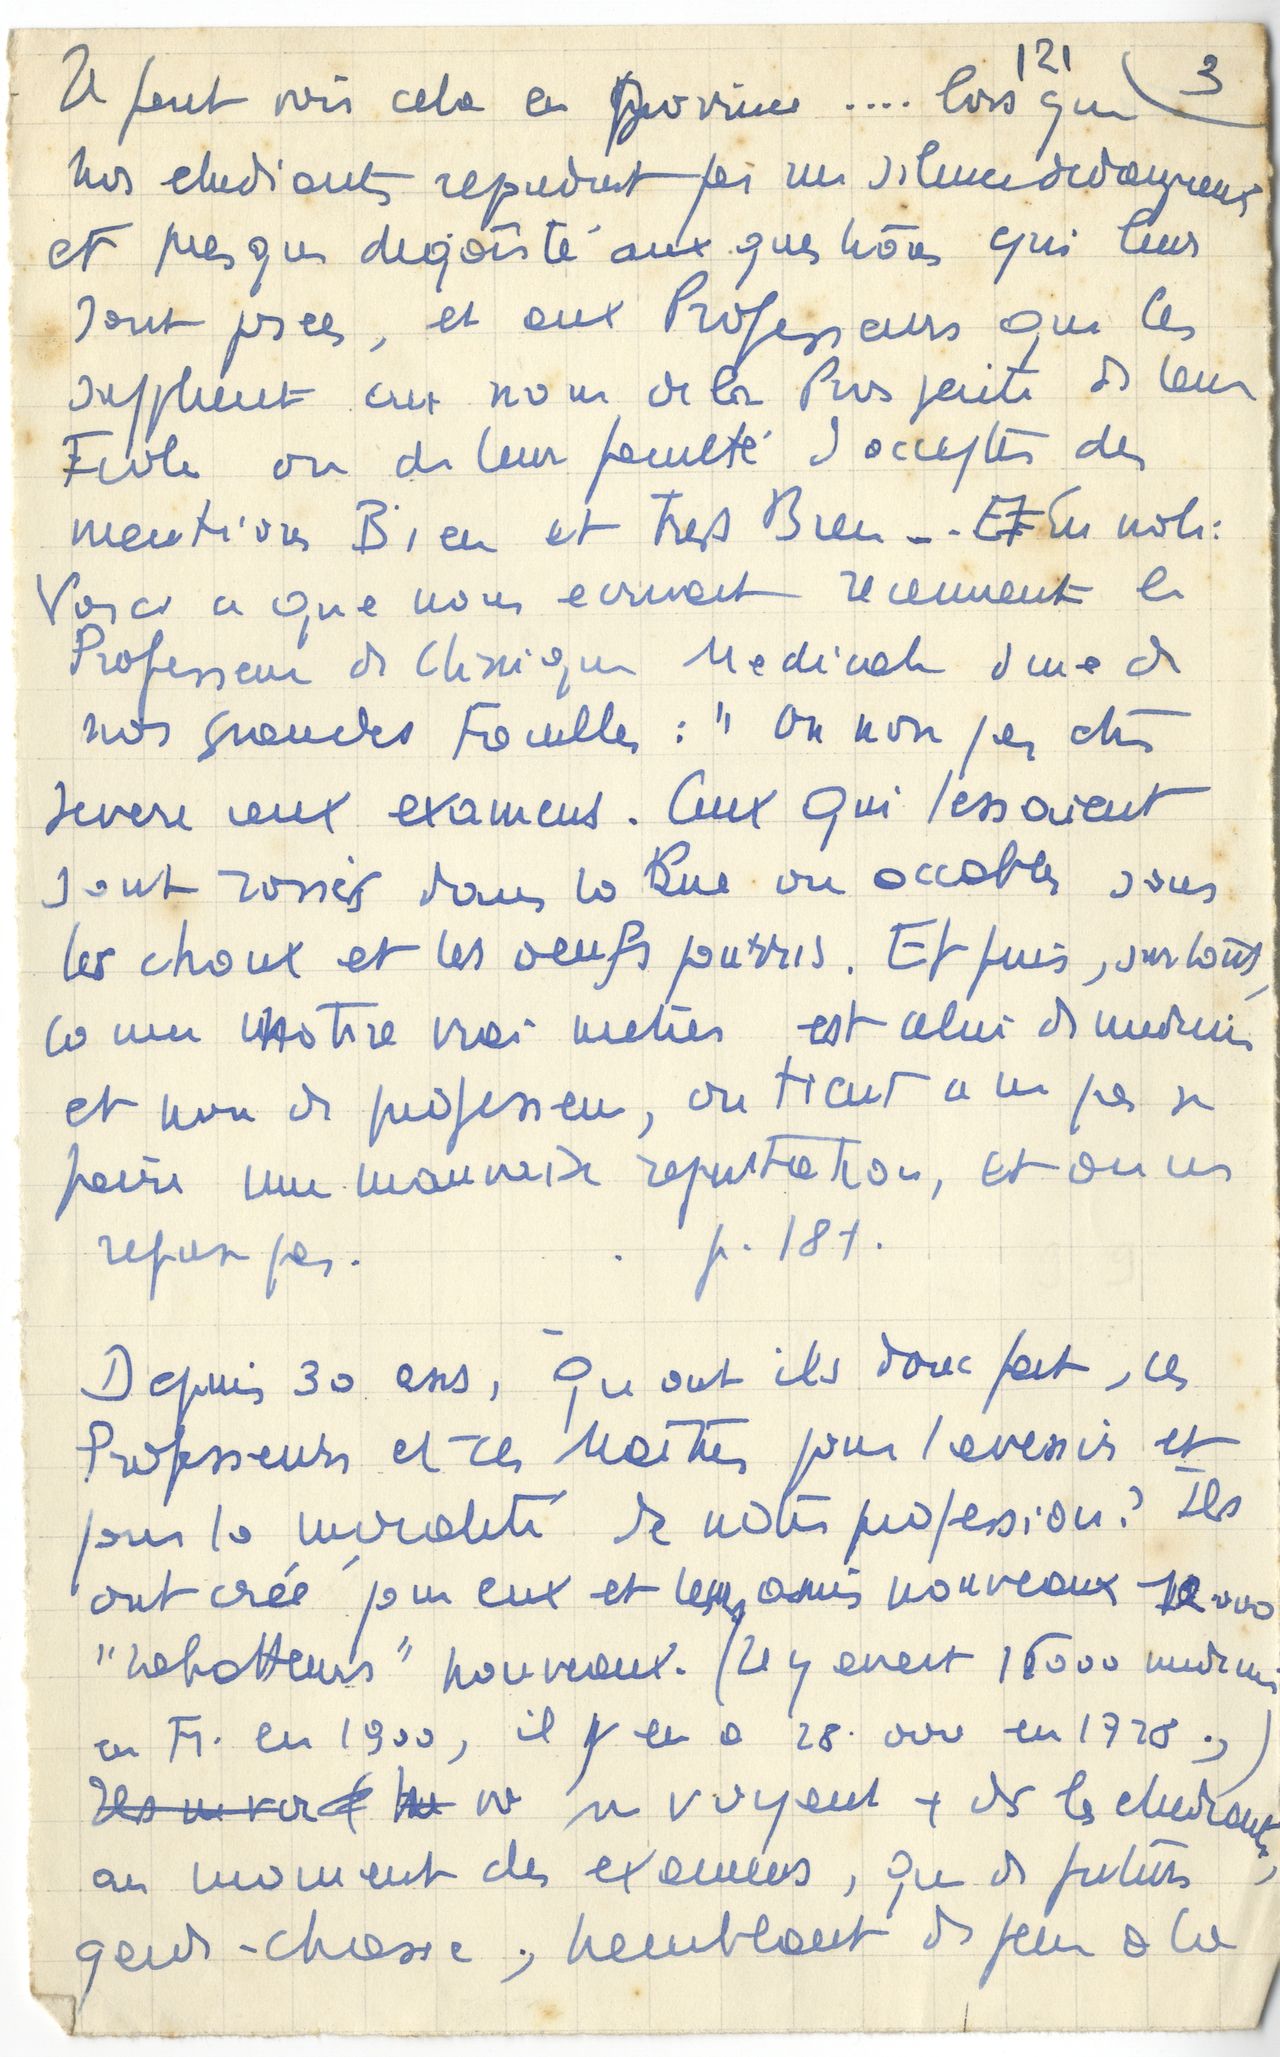 121 3
Il faut voir cela en province .... lorsque
nos etudiants repondent par un silence dedaigneux
et presque degoûté aux questions qui leur
sont posees, et aux Professeurs qui les
supplient au nom de la Prosperite de leur
Ecole ou de leur faculté d accepter des
mentions Bien et Tres Bien -. Et En note:
Voici ce que nous ecrivait recemment le
Professeur de Clinique Medicale d une de
nos grandes Facultes : " On n ose pas etre
severe aux examens. Ceux qui l essaient
sont rossés dans la Rue ou accables sous
les choux et les oeufs pourris. Et puis, surtout,
comme notre vrai metier est celui de medecin
et non de professeur, on tient a ne pas se
faire une mauvaise reputation, et on ne
refuse pas. . p. 181.
Depuis 30 ans, Qu ont ils donc fait, ces
Professeurs et ces Maîtres pour l avenir et
pour la moralité de notre profession? Ils
ont créé pour eux et leurs amis nouveaux 12 000
"rabatteurs" nouveaux. (Il y avait 16000 medecins
en Fr. en 1900, il y en a 28. 000 en 1928.,)
Ils ne voient ne voyent + ds les etudiants,
au moment des examens, que de futurs
garde-chasse, tremblant de peur a la